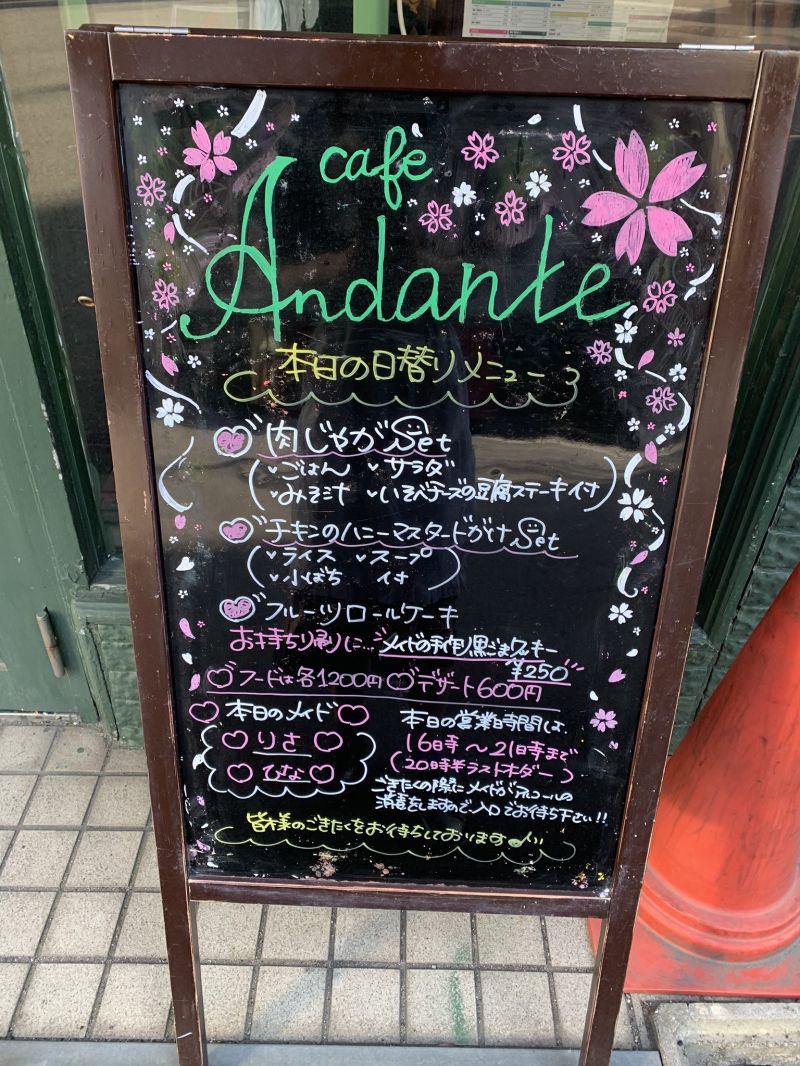 cafe
Andante
本日の日替りメニュー
肉じゃがSet
ごはん サラダ
みそ汁 いそべチーズの豆腐ステーキ付
チキンのハニーマスタードがけSet
ライス スープ
小ばち 付
フルーツロールケーキ
お持ち帰りに… メイドの手作り黒ごまクッキー
¥250
フードは各1200円 デザート600円
本日のメイド
りさ
ひな
本日の営業時間は、
16時〜21時まで
(20時半ラストオーダー)
ごきたくの際にメイドがアルコールの
消毒をしますので入口でお待ち下さい!!
皆様のごきたくをお待ちしております♪